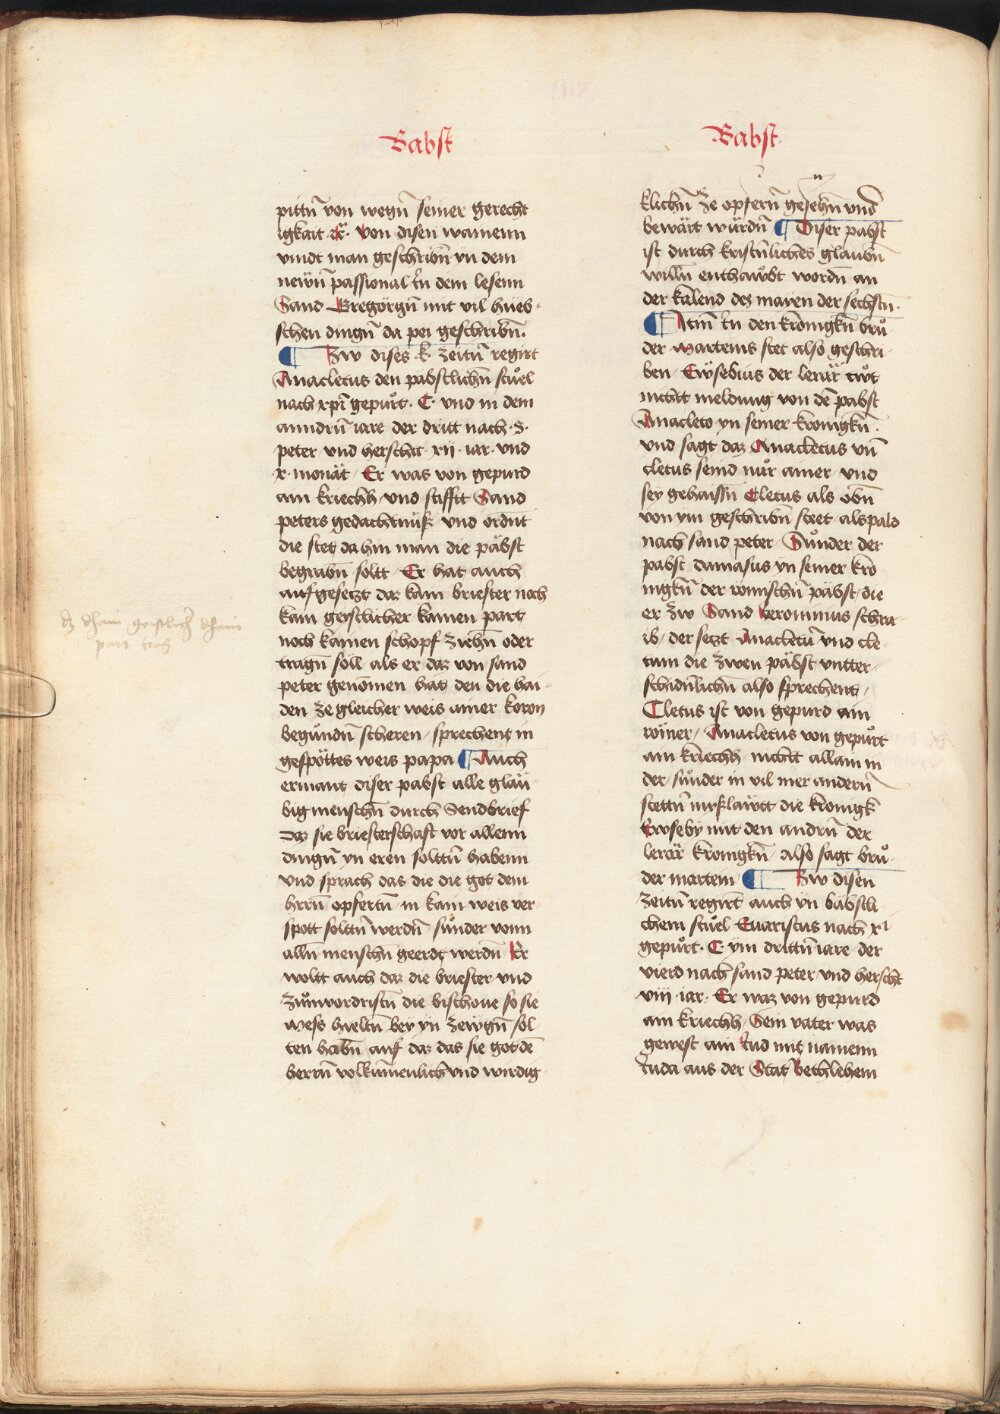 Babst
pittn̄ von wegn̄ seiner gerecht
igkait ꝛc̄. von disen wamenn
vindt man geschribn̄ yn dem
newn̄ passional In̄ dem lesenn
Sand Gregörgn̄ mit vil hueb-
schen dingn̄ da pei geschribn̄.
¶ Zw dises k. zeitn̄ regirt
Anacletus den pabstlichn̄ stuͦl
nach xp̄i gepuͦrt. C. vnd in dem
anndrn̄ iare der dritt nach. S.
peter vnd herscht. xij. iar. vnd
x. monät. Er was von gepurd
ain kriechh vnd stiffit Sand
peters gedächtnüß vnd ordnt
die stet da hin man die päbst
begrabn̄ soltt. Er hat auch
auf gesetzt daz kain briester noch
kain geistlicher kainen part
noch kainen schopf ziehn̄ oder
tragn̄ soll als er daz von sand
peter genomen hat den die hai-
den ze gleicher weis ainer koron
begundn̄ scheren / sprechent in
gespöttes weis papa ¶ Auch
ermant diser pabst alle gläu
big menschn̄ durch Sendbrief
Daz sie briesterschaft vor allenn
dingn̄ yn eren solttn̄ habenn
vnd sprach das die die got dem
hrrn̄ opfertn̄. in kain weis ver
spott solttn̄ werdn̄ sunder vonn
alln̄ menschn̄ geerdt werdn̄ Er
woltt auch daz die briester vnd
zuͦnwordristn̄ die bischoue so sie
mess hieltn̄ bey yn zewgn̄ sol
ten habn̄ auf daz das sie got dē
herrn̄ volkumenlich vnd wirdig
Babst
klichn̄ ze opfern̄ gesehn̄ vnd
bewärt würdn̄ ¶ Diser pabst
ist durch kristn̄liches glaubn̄
willn̄ enthawbt wordn̄ an
der kalend dez maien der sechstn̄.
¶ Item In̄ den kronigkn̄ bruͦ
der Martenis stet also geschri
ben. Ewsebius der lerär twt
nicht meldung von dē pabst
Anacleto yn seiner kronigkn̄.
vnd sagt daz Anacletus vn̄
cletus seind nur ainer. vnd
sey gehaissn̄ Cletus als obn̄
von ym geschribn̄ steet. als pald
nach sand peter. Sunder der
pabst damasus yn seiner kro
nigkn̄ der romischn̄ päbst / die
er zw Sand Jeronimus schra
ib / der setzt Anacletū vnd cle
tum die zwen päbst vnter
schidn̄lichn̄ also sprechent /
Cletus ist von gepurd ain
römer / Anacletus von gepurt
ain kriechh nicht allain in
der / sunder in vil mer andern̄
stettn̄ mißlawtt die kronigk
Ewseby mit den andrn̄ der
lerär kronigkn̄. also sagt bruͦ-
der martem ¶ Zw disen
zeitn̄ regirt auch yn bäbstli
chem stuͦl Euaristus nach xi
gepurt. C ym drittn̄ iare der
vierd nach sand peter vnd herscht
viij. iar. Er waz von gepurd
ain kriechh. Sein vater was
gewest ain Jud mit namenn
Juda aus der Stat bethlehem